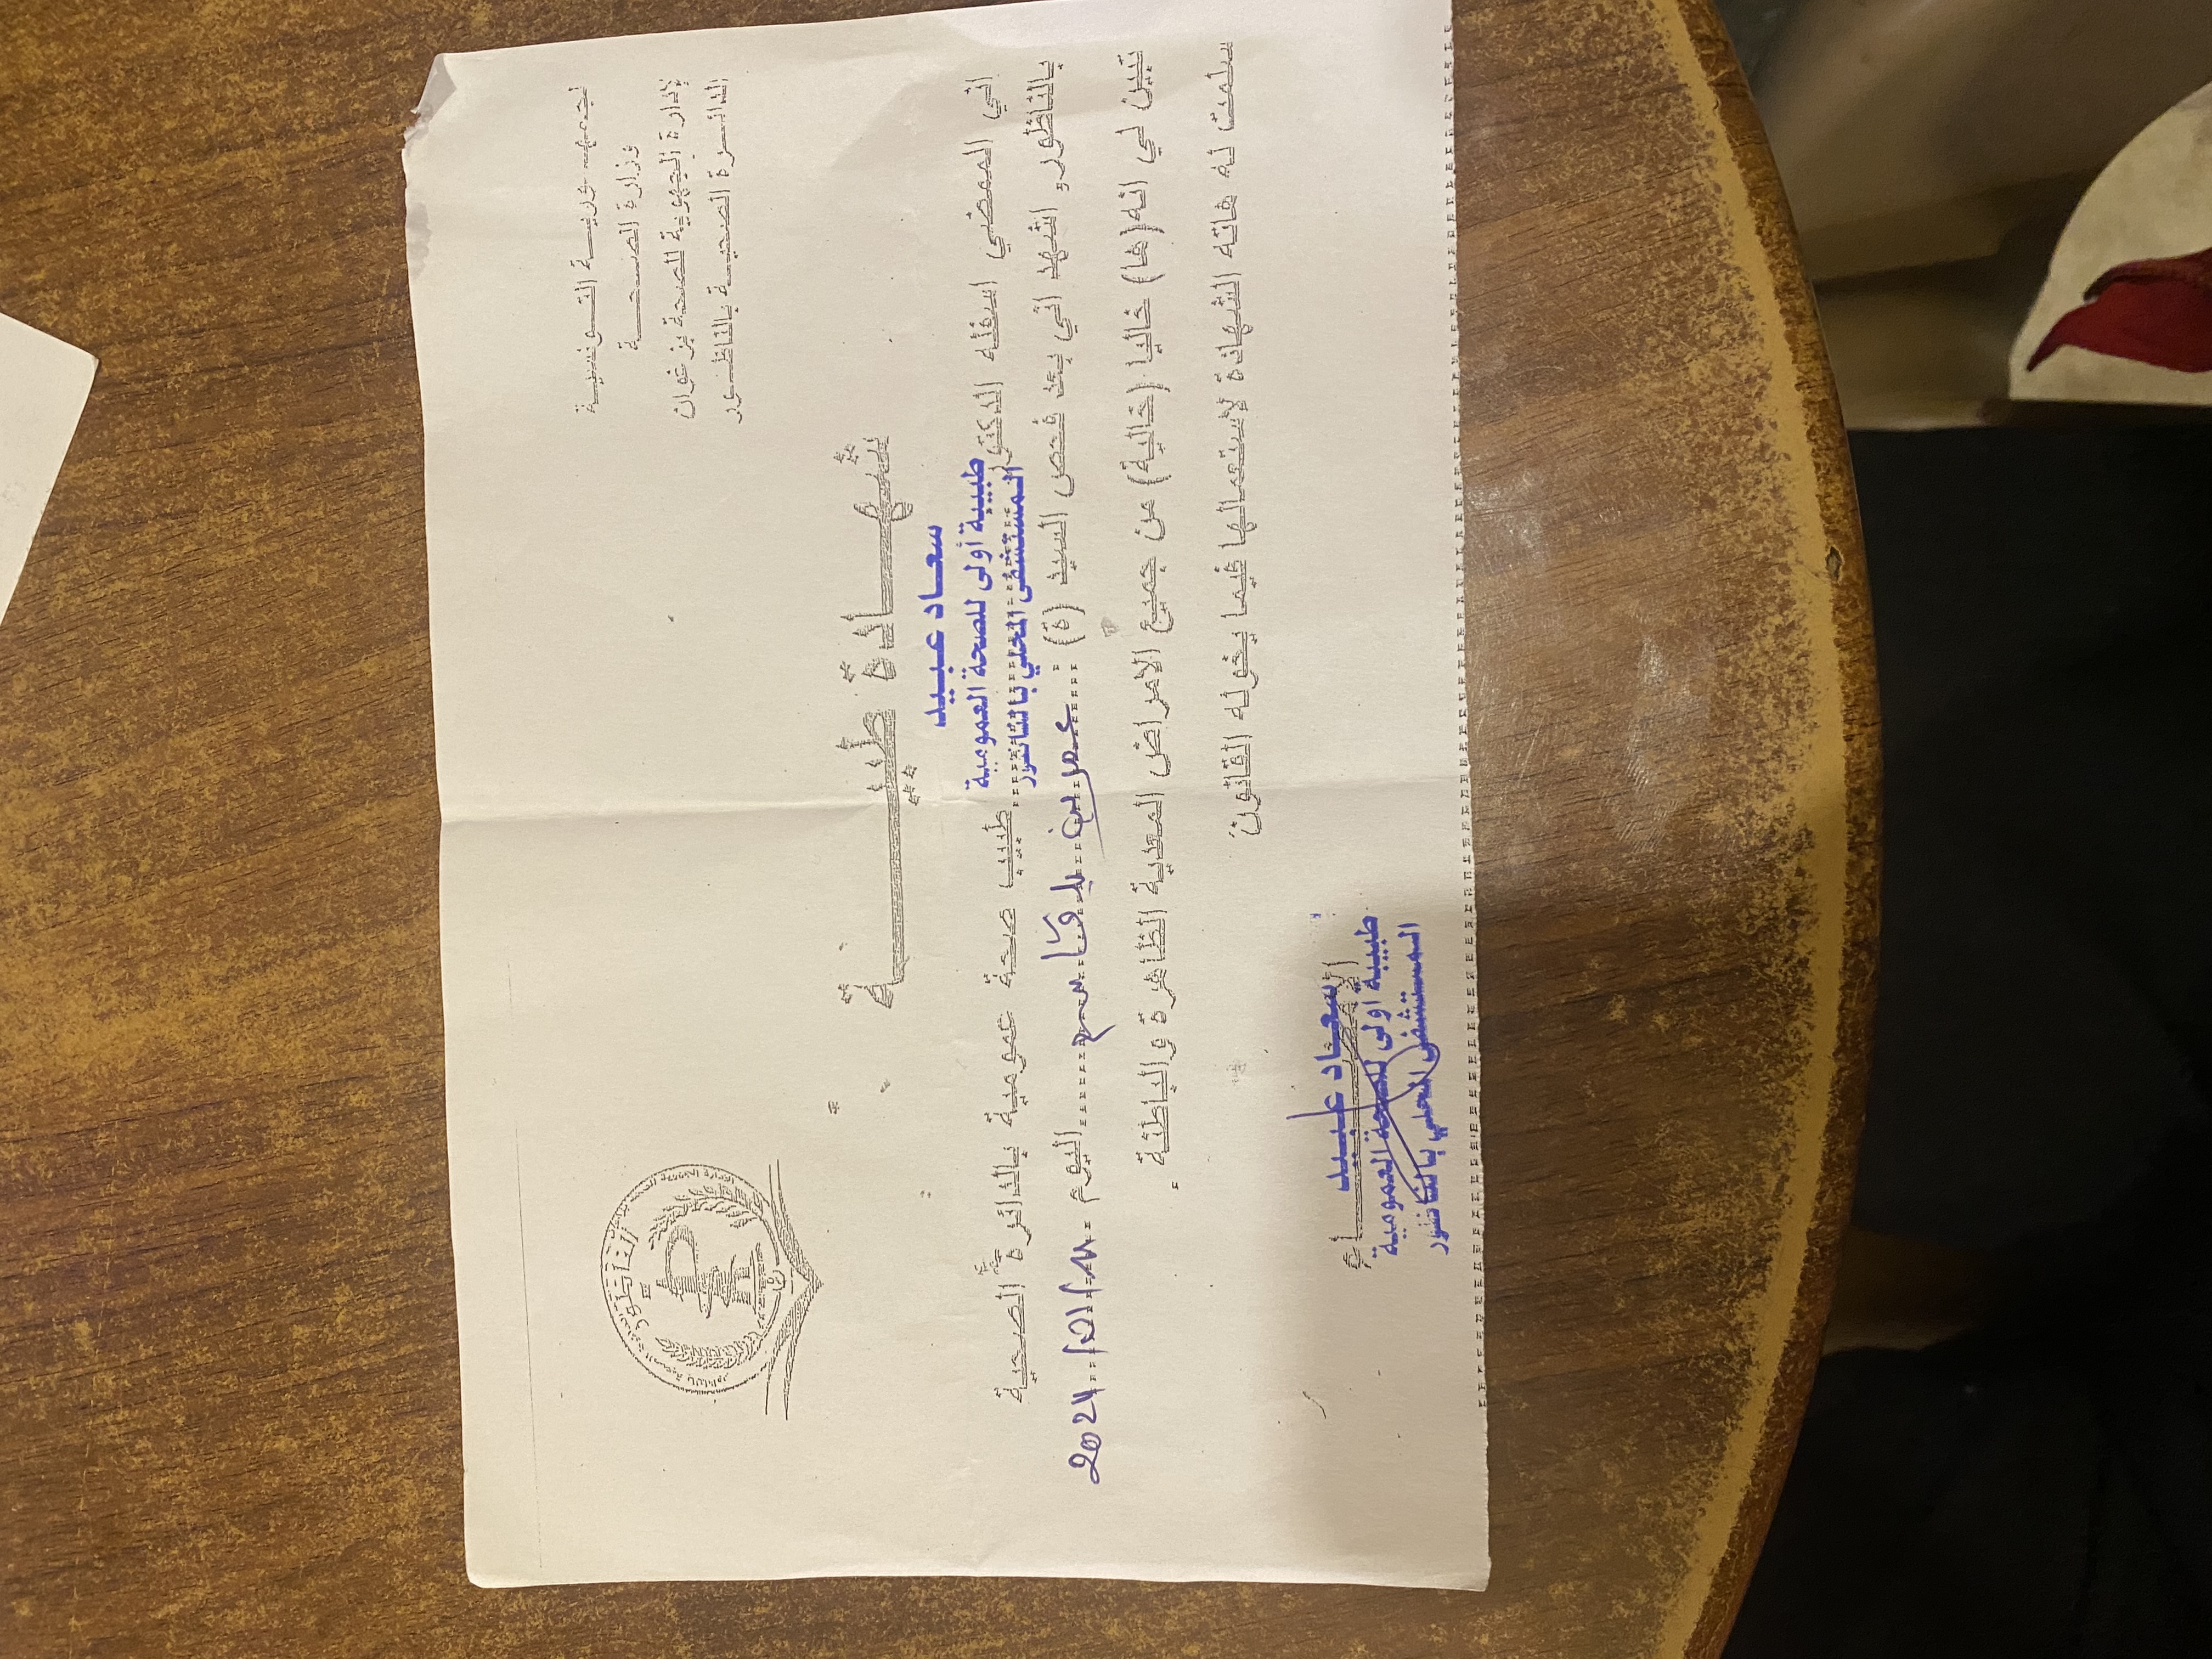 الجمهورية التونسية
وزارة الصحة
الإدارة الجهوية للصحة بزغوان
الدائرة الصحية بالناظور
شهادة طبية
سعاد عبيد
طبيبة أولى للصحة العمومية
المستشفى المحلي بالناظور
اني الممضي اسفله الدكتور طبيب صحة عمومية بالدائرة الصحية
بالناظور, اشهد اني بعد فحص السيد (ة) بلقاسم اليوم 2024
تبين لي انه(ها) خاليا (خالية) من جميع الامراض المعدية الظاهرة والباطنة .
سلمت له هاته الشهادة لاستعمالها فيما يخوله القانون
الامضاء
سعاد عبيد
طبيبة أولى للصحة العمومية
المستشفى المحلي بالناظور